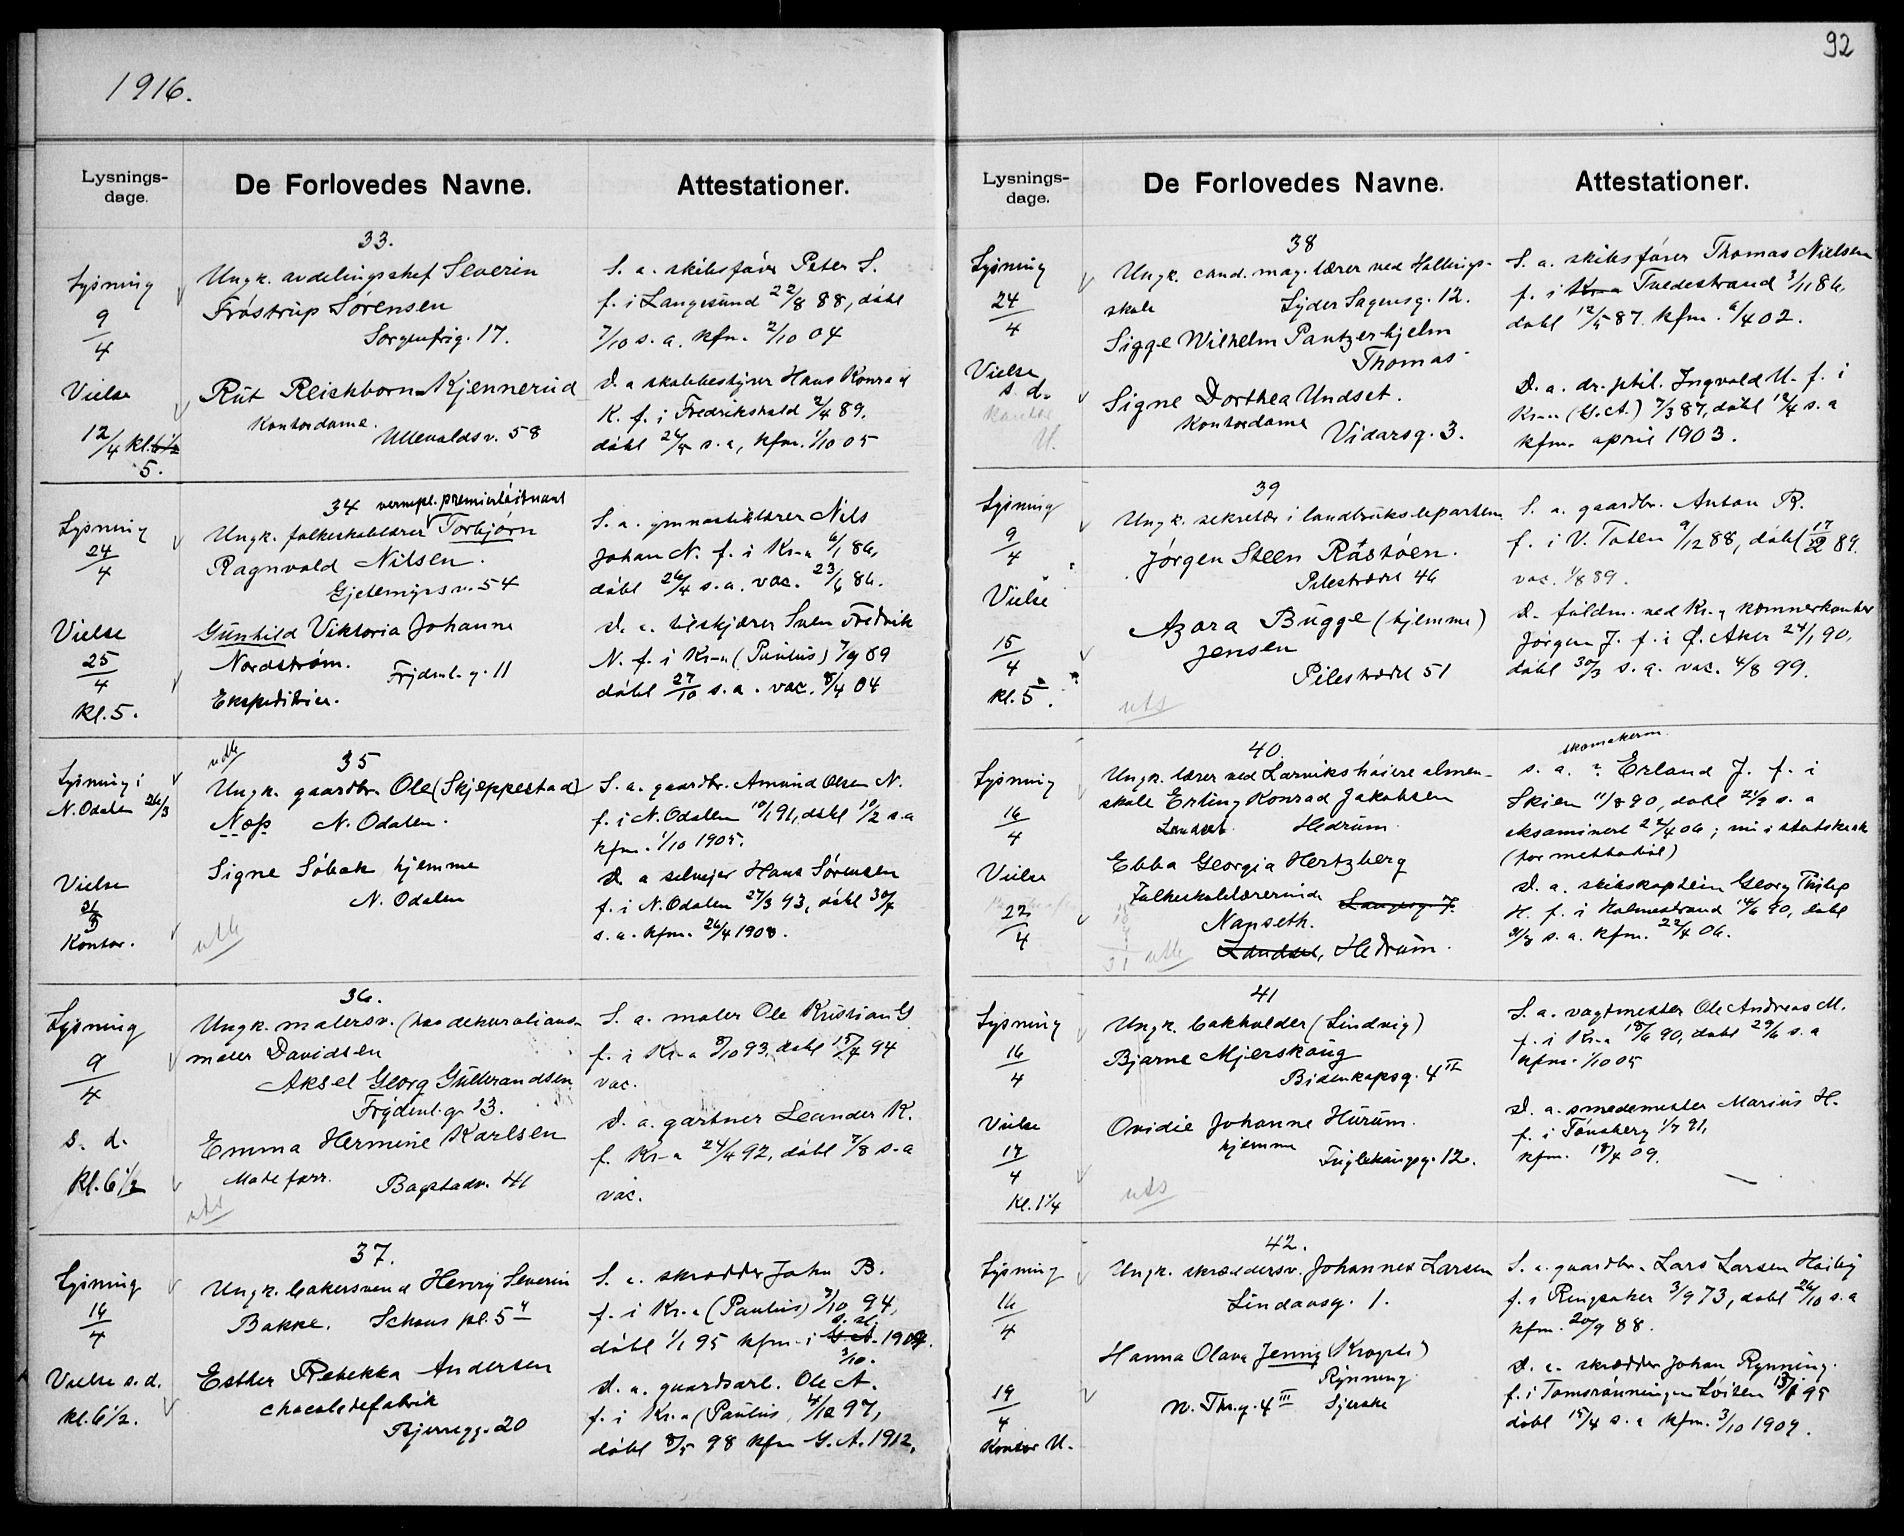 1916.
Lysnings-
dage.
De Forlovedes Navne.
Attestationer.
33.
Lysning
9/4
Vielse
12/4 kl. 6 1/2
5.
Ungk. avdelingschef Severin
Frøstrup Sørensen
Sorgenfrig. 17.
Rut Reichborn-Kjennerud
Kontordame.
Ullevaldsv. 58
S. a. skibsfører Peter S.
f. i Langesund 22/8 88, døbt
7/10 s. a. kfm. 2/10 04
D. a skolebestyrer Hans Konrad
K. f. i Fredrikshald 2/4 89.
døbt 26/5 s. a, kfm. 1/10 05
34 vernepl. premierløitnant
Lysning
24/4
Vielse
25/4
kl. 5.
Ungk. folkeskolelærer Torbjørn
Ragnvald Nilsen.
Gjetemyrsv. 54
Gunhild Viktoria Johanne
Nordstrøm. Frydenl. g. 11
Ekspeditrice.
S. a. gymnastiklærer Nils
Johan N. f. i Kr-a 6/1 86,
døbt 26/4 s. a. vac. 23/6 86.
D. a. tilskjærer Sven Fredrik
N. f. i Kr-a (Paulus) 7/9 89
døbt 27/10 s. a. vac. 8/4 04
35
Lysning i
N. Odalen 26/3
Vielse
Kontor.
utb
Ungk. gaardbr. Ole (Skjeppestad)
Næss N. Odalen.
Signe Søbak hjemme
N. Odalen
utb
S. a. gaardbr. Amund Olsen N.
f. i N. Odalen 10/1 91, døbt 10/2 s. a
kfm. 1/10 1905.
D. a selveier Hans Sørensen
f. i N. Odalen 27/3 93, døbt 30/7
s. a. kfm. 26/4 1908.
36.
Lysning
9/4
s. d.
kl. 6 1/2
Ungk. malersv. (hos dekorations-
maler Davidsen
Aksel Georg Gulbrandsen
Frydenl. g. 13.
Emma Hermine Karlsen
Mode forr. Bogstadv. 41
uts
S. a. maler Ole Kristian G.
f. i Kr-a 8/10 93, døbt 15/4 94
vac.
D. a. gartner Leander K.
f. Kr-a 24/4 92, døbt 7/8 s. a
vac.
37.
Lysning
16/4
Vielse s. d.
kl. 6 1/2.
Ungk. bakersvend Henry Severin
Bakke. Schous pl. 5
Esther Rebekka Andersen
chocoladefabrik
Bjerregg. 20
S. a. skrædder John B.
f. i Kr-a (Paulus) 7/10 94,
døbt 1/1 95 kfm. i G. A. 1909.
3/10.
D. a. gaardsarb. Ole A.
f. i Kr-a (Paulus, 4/12 97,
døbt 8/5 98 kfm G. A. 1912.
92
Lysnings-
dage.
De Forlovedes Navne.
Attestationer.
38
Lysning
24/4
Vielse
s. d.
Kontor
U.
Ungk. cand. mag. lærer ved Hallings-
skole Lyder Sagensg. 12.
Sigge Wilhelm Pantzerhjelm
Thomas
Signe Dorthea Undset.
Kontordame Vidarsg. 3.
S. a. skibsfører Thomas Nielsen
f. i Kr-a Tvedestrand 3/11 86,
døbt 12/5 87. kfm. 6/4 02.
D. a. dr. phil. Ingvald U. f. i
Kr-a (G. A.) 7/3 87, døbt 12/4 s. a
kfm. april 1903.
39
Lysning
9/4
Vielse
15/4
kl. 5.
Ungk. sekretær i landbruksdepartem
Jørgen Steen Råstøen.
Pilestrædet 46
Azora Bugge (hjemme)
Jensen
Pilestrædet 51
uts
S. a. gaardbr. Anton R.
f. i V. Toten 9/12 88, døbt 17/2 89.
vac. 1/8 89.
D. fuldm. ved Kr-a kemnerkontor
Jørgen J. f. i Ø. Aker 24/1 90,
døbt 30/3 s. a. vac. 4/8 99.
40.
Lysning
16/4
Vielse
22/4
Ungk. lærer ved Larviks høiere almen-
skole Erling Konrad Jakobsen
Hedrum.
Ebba Georgia Hertzberg
Folkeskolelærerinde Langesg. 7.
Nanseth.
Landset, Hedrum.
utb
skomakerm.
S. a. Erland J. f. i
Skien 11/8 90, døbt 21/9 s. a
eksaminert 22/4 06; nu i statskirk
D. a. skibskaptein Georg Philip
H. f. i Holmestrand 14/6 90, døbt
31/8 s. a. kfm. 22/4 06.
41
Lysning
16/4
Vielse
17/4
kl. 1 1/4
Ungk. bokholder (Lindvig)
Bjarne Mjerskaug
Bidenkapsg. 4 II
Ovidie Johanne Hurum.
hjemme
Fuglehaugsg. 12.
uts
S. a. vagtmester Ole Andreas M.
f. i Kr-a 18/6 90, døbt 29/6 s. a
kfm. 1/10 05
D. a. smedemester Marius H.
f. i Tønsberg 1/7 91,
kfm. 18/4 09.
42.
Lysning
16/4
19/4
Kontor U.
Ungk. skræddersv. Johannes Larsen
Lindaasg. 1.
Hanna Olava Jenny (Krogsti)
Rynning
W. Thr. g. 4 III Syerske
S. a. gaardbr. Lars Larsen Høiby
f. i Ringsaker 3/9 73, døbt 26/10 s. a
kfm. 20/9 88.
D. a. skrædder Johan Rynning.
f. i Tomsrønningen Løiten 13/1 95
døbt 15/4 s. a kfm. 3/10 1909.